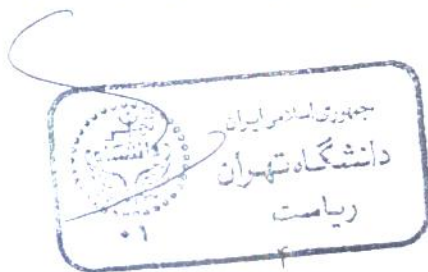 جمهوری اسلامی ایران
دانشگاه تهران
ریاست
۰۱
۴